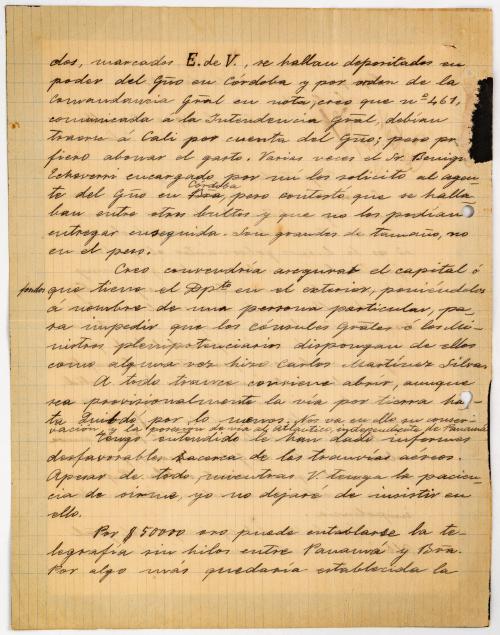 dos, marcados E. de V., se hallan depositados en
poder del Gño en Córdoba y por orden de la
Comandancia Gral en nota, creo que nº 461,
comunicada á la Intendencia Gral, debían
traerse á Cali por cuenta del Gño; pero pre
fiero abonar el gasto. Varias veces el Sr. Benigno
Echeverri encargado por mí los solicitó al agen
te del Gño en Córdoba, pero contestó que se halla
ban entre otros bultos y que no los podían
entregar enseguida. Son grandes de tamaño, no
en el peso.
Creo convendría asegurar el capital ó
fondos que tiene el Dpto en el exterior, poniéndolos
á nombre de una persona particular, pa
ra impedir que los Cónsules Grales ó los Mi
nistros plenipotenciarios dispongan de ellos
como alguna vez hizo Carlos Martínez Silva.
A todo trance conviene abrir, aunque
sea provisionalmente la vía por tierra has
ta Quibdo, por lo menos. Nos va en ello su conser
vación y la posesión de vía al Atlántico, independiente de Panamá
Tengo entendido le han dado informes
desfavorables acerca de los tranvías aéreos.
Apesar de todo, mientras V. tenga la pacien
cia de oirme, yo no dejaré de insistir en
ello.
Por $50000 oro puede entablarse la te
legrafía sin hilos entre Panamá y Bra.
Por algo más quedaría establecida la